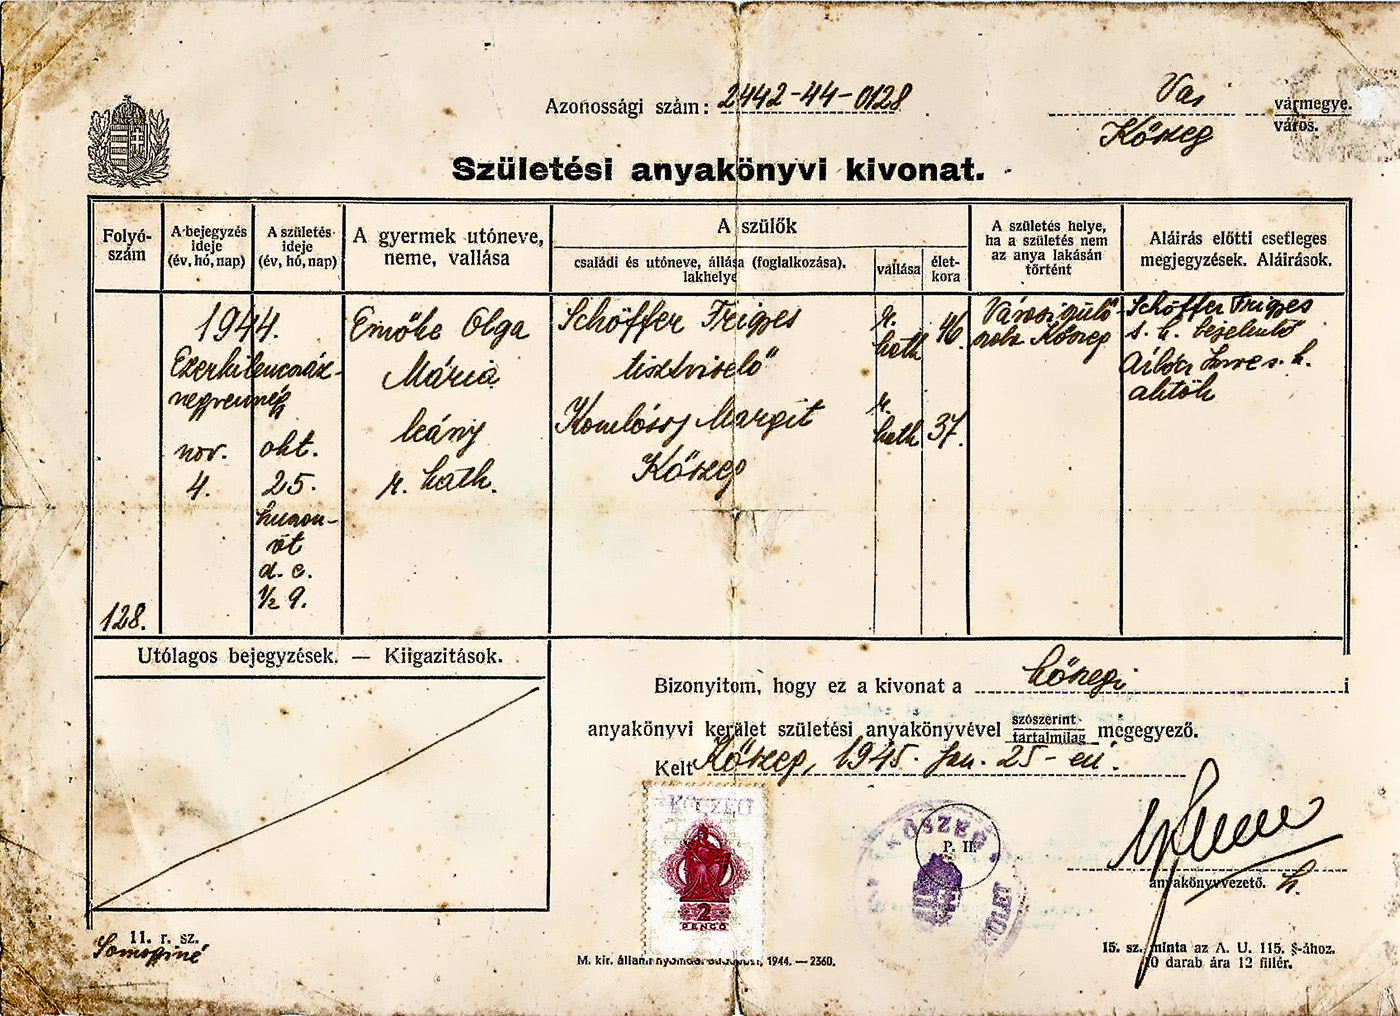 Azonossági szám: 2442-44-0128
Vas vármegye.
Kőszeg város.
Születési anyakönyvi kivonat.
Folyó-
szám
A bejegyzés
ideje
(év, hó, nap)
A születés
ideje
(év, hó, nap)
A gyermek utóneve,
neme, vallása
A szülők
családi és utóneve, állása (foglalkozása).
lakhelye
vallása
élet-
kora
A születés helye,
ha a születés nem
az anya lakásán
történt
Aláírás előtti esetleges
megjegyzések. Aláírások.
128.
1944.
Ezerkilencszáz-
negyvennég
nov.
4.
okt.
25.
huszon-
öt
d. e.
½ 9.
Emőke Olga
Mária
leány
r. kath.
Schöffer Frigyes
tisztviselő
Komlóssy Margit
Kőszeg
r.
kath
46.
r.
kath
37.
Városi szülő-
Kőszeg
Schöffer Frigyes
s. k. bejelentő
s. k.
Utólagos bejegyzések. — Kiigazitások.
Bizonyitom, hogy ez a kivonat a kőszegi i
anyakönyvi kerület születési anyakönyvével szószerint
tartalmilag megegyező.
Kelt Kőszeg, 1945. jan. 25-én.
KŐSZEG
2
PENGŐ
KŐSZEG
P. H.
anyakönyvvezető. h.
11. r. sz.
Somoginé
M. kir. állami nyomda. Budapest, 1944. — 2360.
15. sz. minta az A. U. 115. §-ához.
10 darab ára 12 fillér.